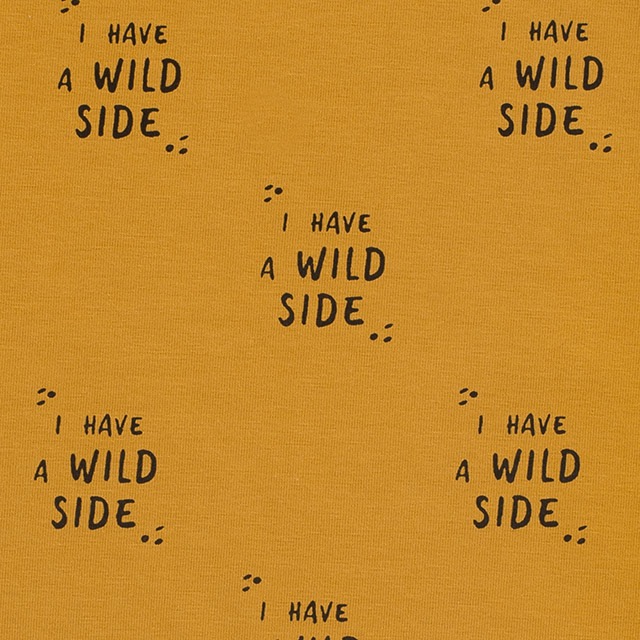 I HAVE
A WILD
SIDE
I HAVE
A WILD
SIDE
I HAVE
A WILD
SIDE
I HAVE
A WILD
SIDE
I HAVE
A WILD
SIDE
I HAVE
WILD